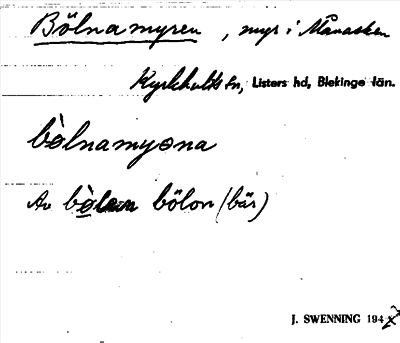 Bölnamyren, myr i Månasken
Kyrkhults sn, Listers hd, Blekinge län.
bòlnamyona
Av bòlon bölon (bär)
J. SWENNING 194